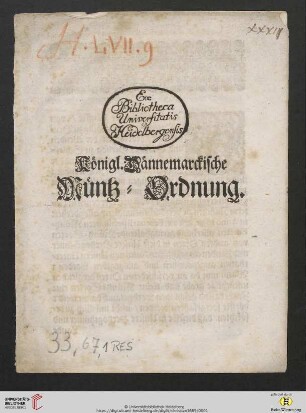 XXXIV
H. L. VII. 9
Exe
Bibliotheca
Universitatis
Heidelbergensis
Königl. Dännemarckische
Müntz-Ordnung.
33, 67, 1 RES
UNIVERSITÄTS-
BIBLIOTHEK
HEIDELBERG
© Universitätsbibliothek Heidelberg